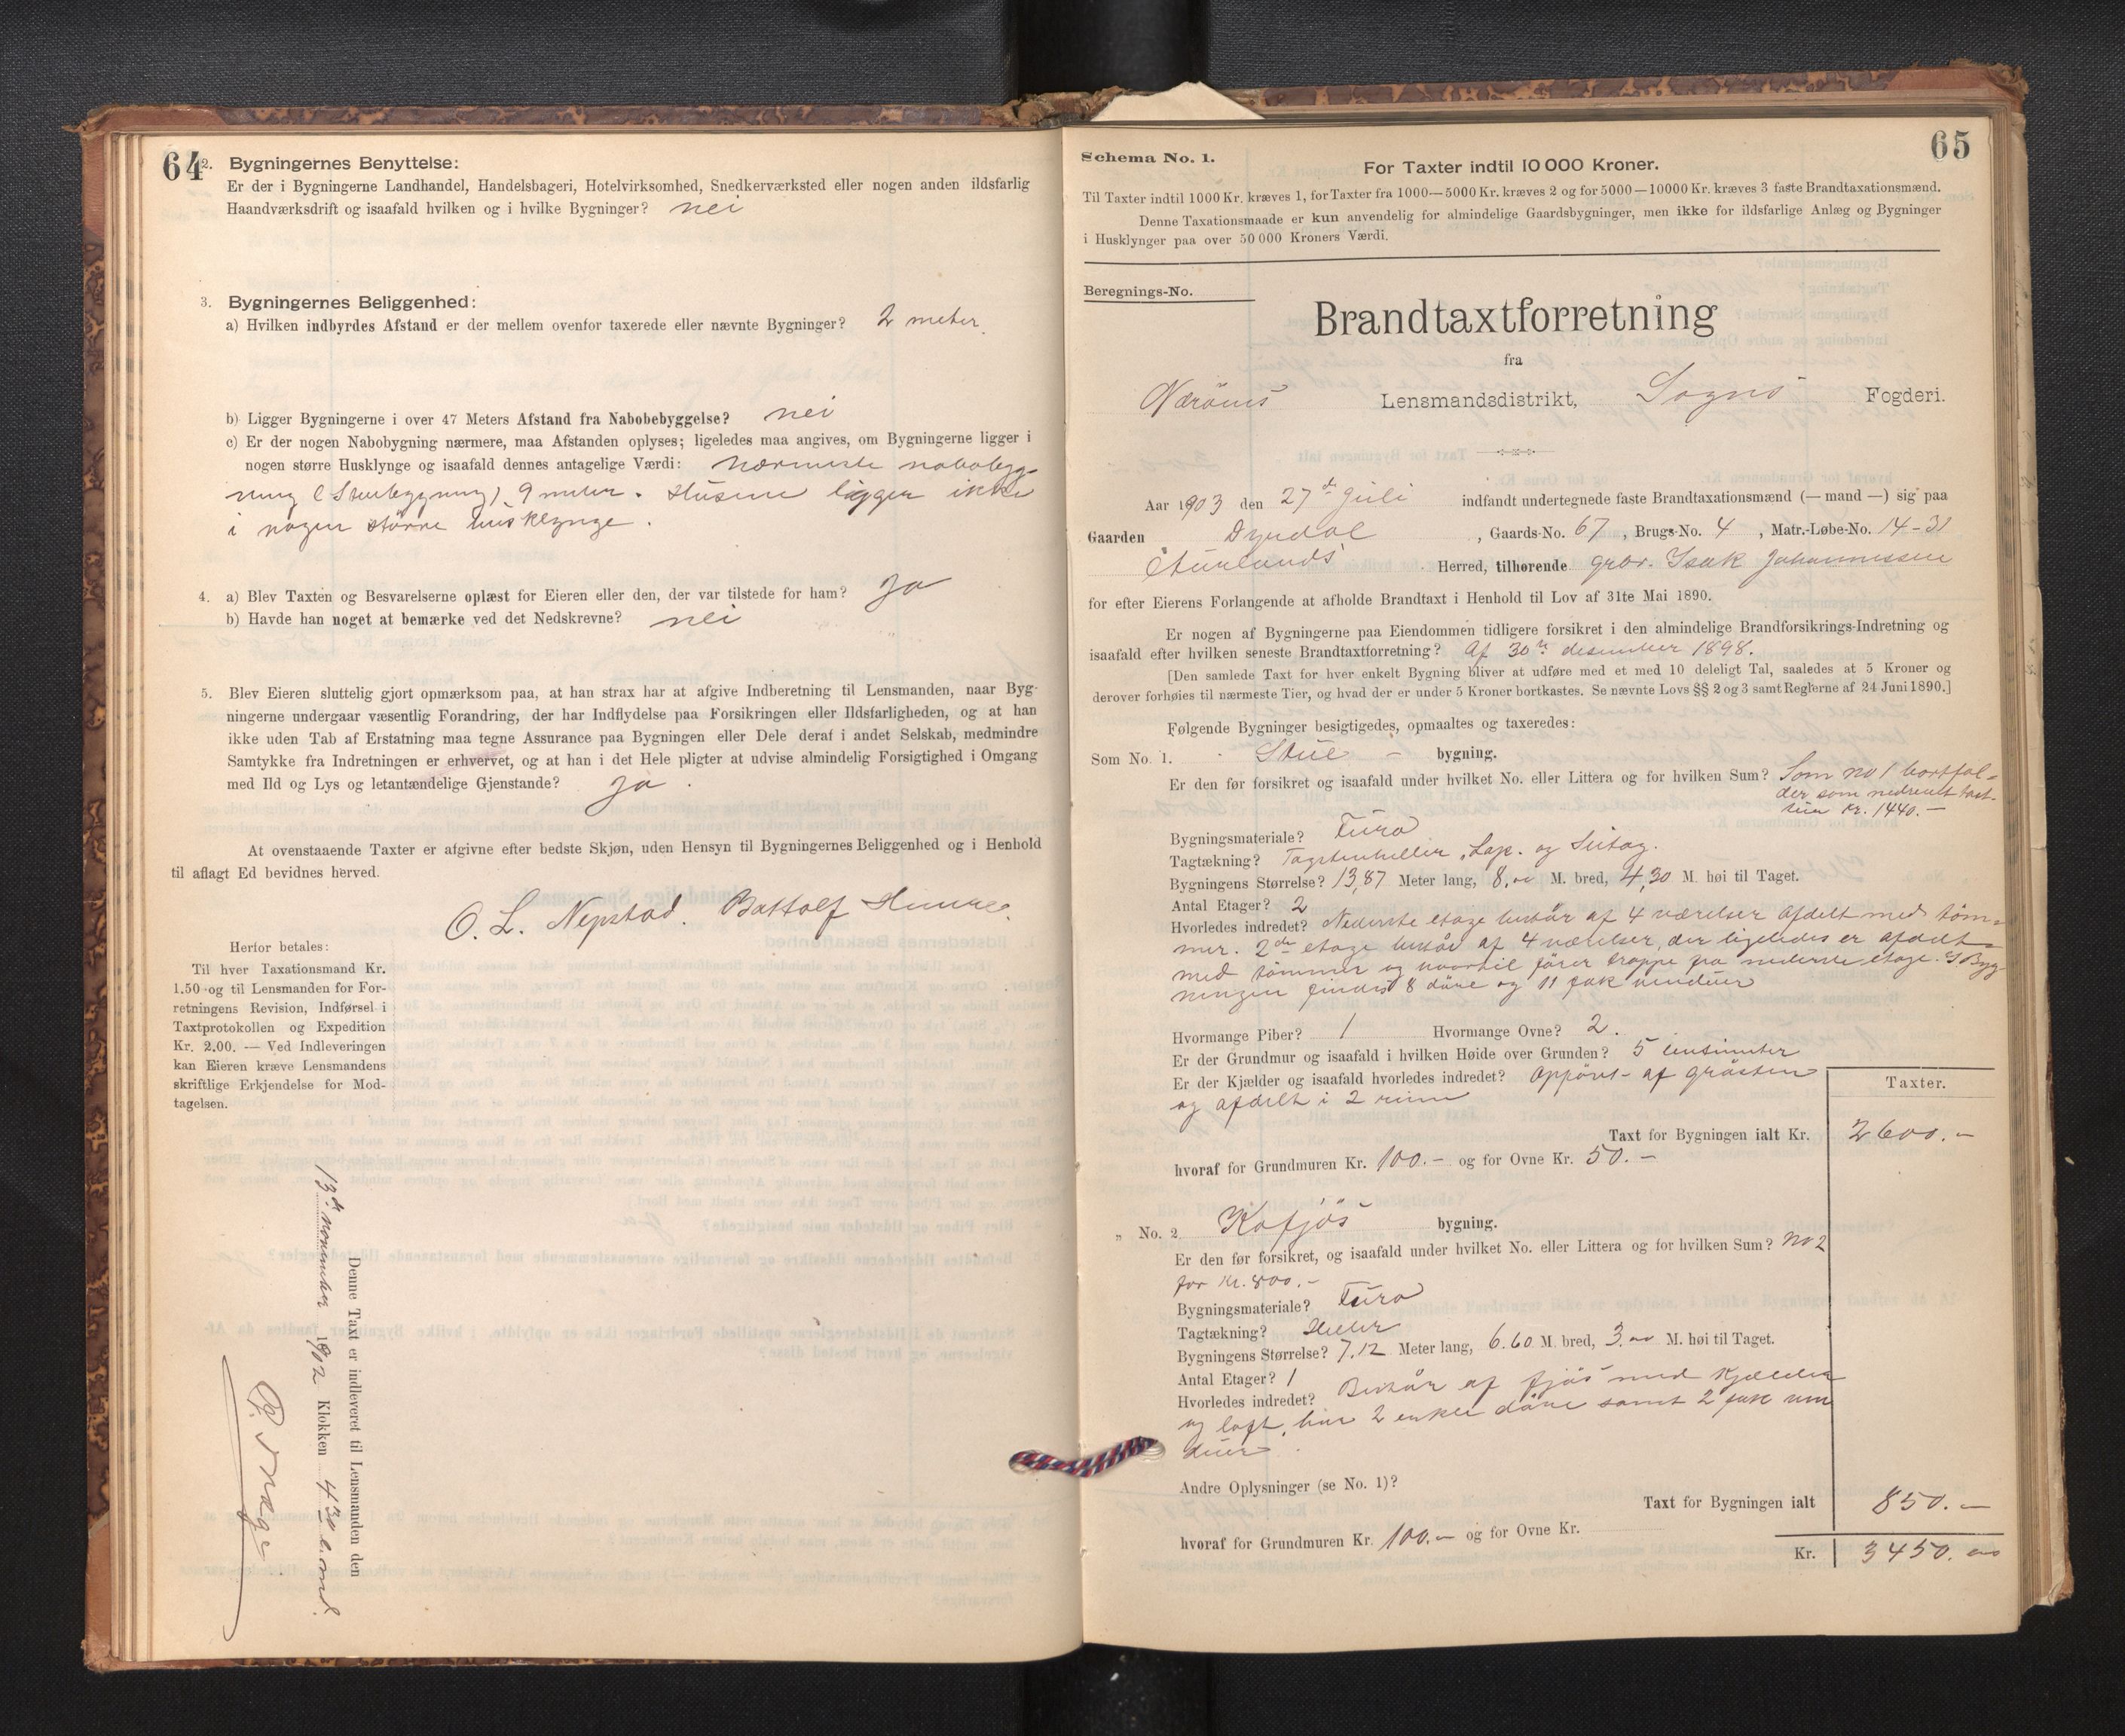 64
2. Bygningernes Benyttelse:
Er der i Bygningerne Landhandel, Handelsbageri, Hotelvirksomhed, Snedkerværksted eller nogen anden ildsfarlig
Haandværksdrift og isaafald hvilken og i hvilke Bygninger? nei
3. Bygningernes Beliggenhed:
a) Hvilken indbyrdes Afstand er der mellem ovenfor taxerede eller nævnte Bygninger? 2 meter.
b) Ligger Bygningerne i over 47 Meters Afstand fra Nabobebyggelse? nei
c) Er der nogen Nabobygning nærmere, maa Afstanden oplyses; ligeledes maa angives, om Bygningerne ligger i
nogen større Husklynge og isaafald dennes antagelige Værdi: nærmeste nabobygg-
ning (Stuebygning) 9 meter. Husene ligger ikke
i nogen større husklynge.
4. a) Blev Taxten og Besvarelserne oplæst for Eieren eller den, der var tilstede for ham? Ja
b) Havde han noget at bemærke ved det Nedskrevne? nei
5. Blev Eieren sluttelig gjort opmærksom paa, at han strax har at afgive Indberetning til Lensmanden, naar Byg-
ningerne undergaar væsentlig Forandring, der har Indflydelse paa Forsikringen eller Ildsfarligheden, og at han
ikke uden Tab af Erstatning maa tegne Assurance paa Bygningen eller Dele deraf i andet Selskab, medmindre
Samtykke fra Indretningen er erhvervet, og at han i det Hele pligter at udvise almindelig Forsigtighed i Omgang
med Ild og Lys og letantændelige Gjenstande? ja.
At ovenstaaende Taxter er afgivne efter bedste Skjøn, uden Hensyn til Bygningernes Beliggenhed og i Henhold
til aflagt Ed bevidnes herved.
O. L. Nepstad. Battolf
Herfor betales:
Til hver Taxationsmand Kr.
1.50 og til Lensmanden for For-
retningens Revision, Indførsel i
Taxtprotokollen og Expedition
Kr. 2.00. — Ved Indleveringen
kan Eieren kræve Lensmandens
skriftlige Erkjendelse for Mod-
tagelsen.
Denne Taxt er indleveret til Lensmanden den
13de november 1902 Klokken 4 30 e.md.
65
Schema No. 1.
For Taxter indtil 10 000 Kroner.
Til Taxter indtil 1000 Kr. kræves 1, for Taxter fra 1000—5000 Kr. kræves 2 og for 5000—10000 Kr. kræves 3 faste Brandtaxationsmænd.
Denne Taxationsmaade er kun anvendelig for almindelige Gaardsbygninger, men ikke for ildsfarlige Anlæg og Bygninger
i Husklynger paa over 50 000 Kroners Værdi.
Beregnings-No.
Brandtaxtforretning
fra
Nærøens Lensmandsdistrikt, Sogns Fogderi.
Aar 1903 den 27de Juli indfandt undertegnede faste Brandtaxationsmænd (— mand —) sig paa
Gaarden Dyrdal, Gaards-No. 67, Brugs-No. 4, Matr.-Løbe-No. 14-31
Aurlands Herred, tilhørende grbr. Isak Johannessen
for efter Eierens Forlangende at afholde Brandtaxt i Henhold til Lov af 31te Mai 1890.
Er nogen af Bygningerne paa Eiendommen tidligere forsikret i den almindelige Brandforsikrings-Indretning og
isaafald efter hvilken seneste Brandtaxtforretning? Af 30te desember 1898.
[Den samlede Taxt for hver enkelt Bygning bliver at udføre med et med 10 deleligt Tal, saaledes at 5 Kroner og
derover forhøies til nærmeste Tier, og hvad der er under 5 Kroner bortkastes. Se nævnte Lovs §§ 2 og 3 samt Reglerne af 24 Juni 1890.]
Følgende Bygninger besigtigedes, opmaaltes og taxeredes:
Som No. 1. Stue - bygning.
Er den før forsikret og isaafald under hvilket No. eller Littera og for hvilken Sum? Som no 1 bortfal-
der som nedrevet
Kr. 1440.—
Bygningsmateriale? Furo
Tagtækning? Tagstenheller, og
Bygningens Størrelse? 13,87 Meter lang, 8,00 M. bred, 4,30 M. høi til Taget.
Antal Etager? 2
Hvorledes indredet? Nederste etage består af 4 værelser afdelt med tøm-
mer. 2den etage består af 4 værelser, der ligeledes er afdelt
med tømmer og hvortil fører trappe fra nederste etage. I Byg-
ningen findes 8 døre og 11 fak vinduer
Hvormange Piber? 1 Hvormange Ovne? 2.
Er der Grundmur og isaafald i hvilken Høide over Grunden? 5 centimeter
Er der Kjælder og isaafald hvorledes indredet? Opført af gråsten
og afdelt i 2 rum
Taxter.
Taxt for Bygningen ialt Kr. 2600.—
hvoraf for Grundmuren Kr. 100.— og for Ovne Kr. 50.—
„ No. 2 Kofjøs bygning.
Er den før forsikret, og isaafald under hvilket No. eller Littera og for hvilken Sum? No 2
for Kr. 800.—
Bygningsmateriale? Furo
Tagtækning? Heller
Bygningens Størrelse? 7,12 Meter lang, 6.60 M. bred, 3.00 M. høi til Taget.
Antal Etager? 1
Hvorledes indredet? Består af fjøs med Kjælder
og loft, har 2 enkle døre samt 2 fak vin
duer.
Andre Oplysninger (se No. 1)?
Taxt for Bygningen ialt 850.—
hvoraf for Grundmuren Kr. 100.— og for Ovne Kr.
Kr. 3450.00